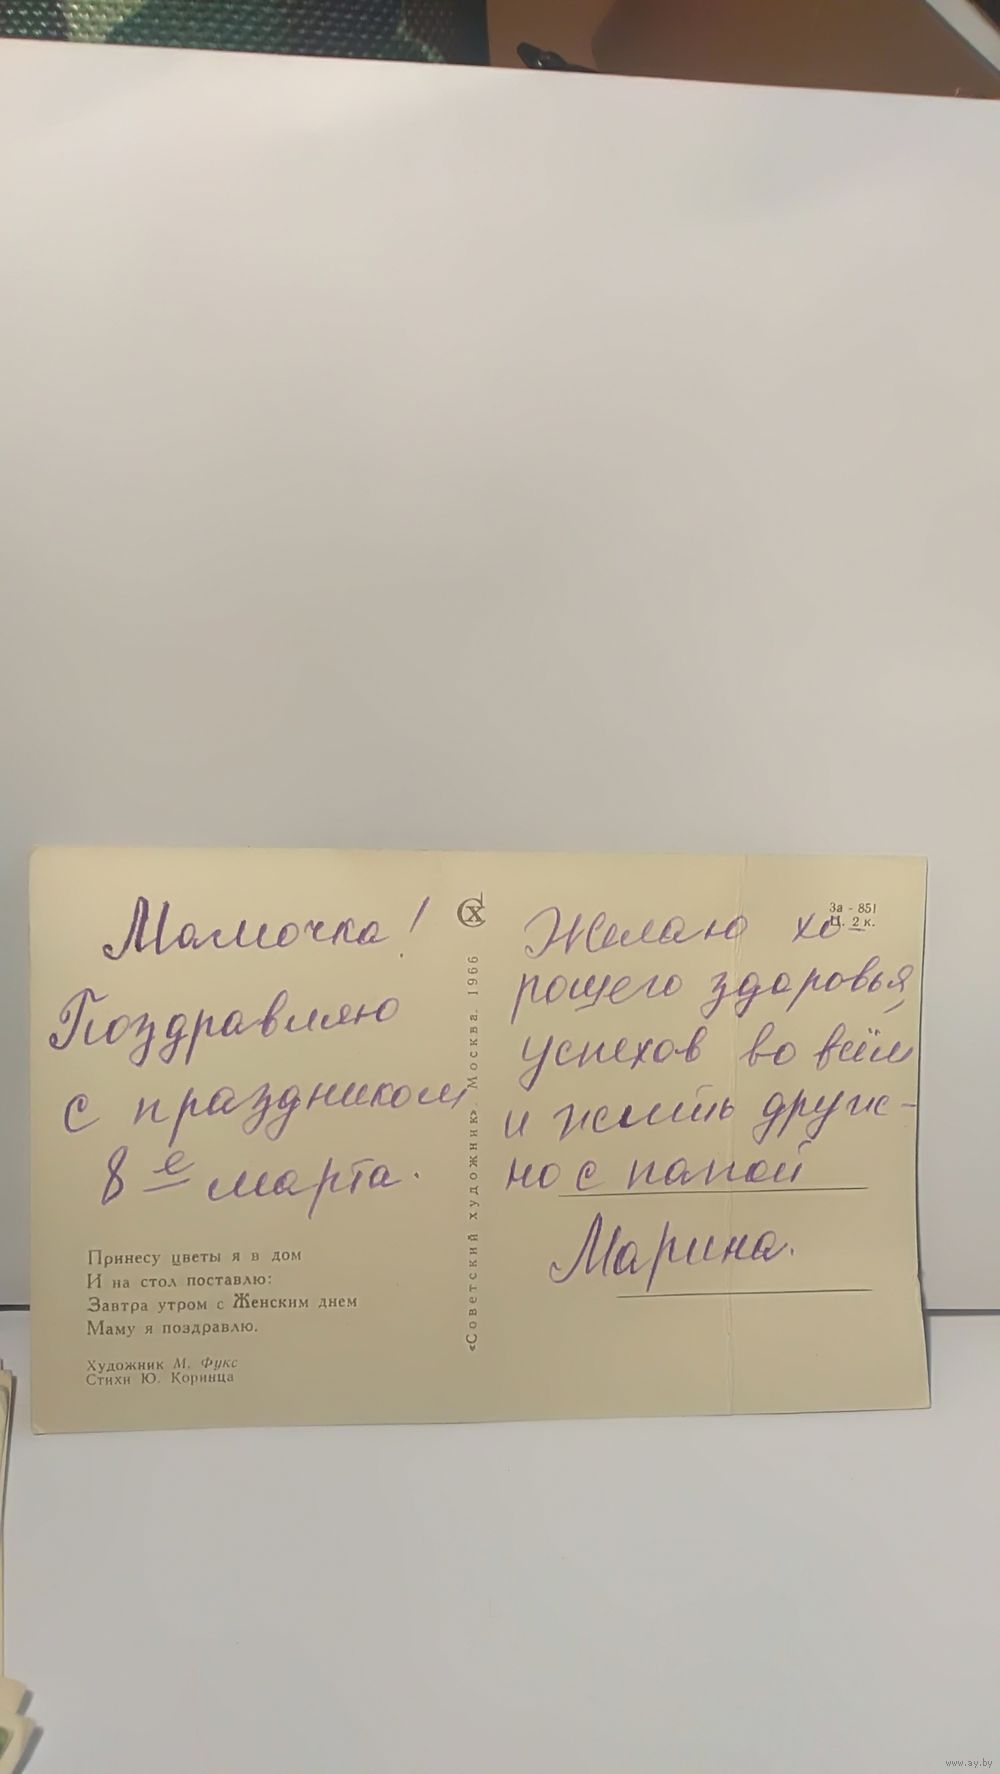 Мамочка!
Поздравляю
с праздником
8е марта.
Принесу цветы я в дом
И на стол поставлю:
Завтра утром с Женским днем
Маму я поздравлю.
Художник М. Фукс
Стихи Ю. Коринца
СХ
«Советский художник». Москва. 1966
За - 851
Ц. 2 к.
Желаю хо-
рошего здоровья,
успехов во всём
и жить друж-
но с папой
Марина.
www.ay.by